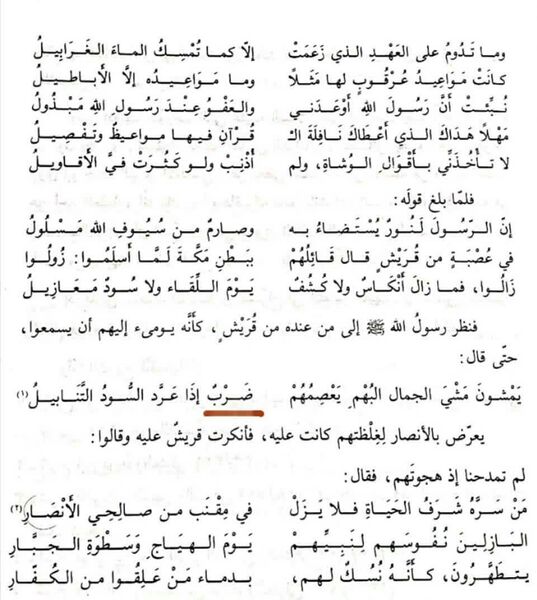 وما تَدُومُ على العَهْدِ الذي زَعَمَتْ إلّا كما تُمْسِكُ الماءَ الغَرَابِيلُ
كانَتْ مَوَاعِيدُ عُرْقُوبٍ لها مَثَلًا وما مَوَاعِيدُه إلَّا الأَباطيلُ
نُبِّئتُ أنَّ رَسُولَ اللهِ أَوْعَدَني والعَفْوُ عِنْدَ رَسُولِ اللهِ مَبْذُولُ
مَهْلًا هَدَاكَ الذي أعْطَاكَ نَافِلَةَ الْـ قُرْآنِ فيها مواعيظٌ وتَفْصِيلُ
لا تَأخُذَنِّي بأقْوَالِ الوُشَاةِ، ولم أُذْنِبْ ولو كَثُرَتْ فيَّ الأقَاويلُ
فلمّا بلغ قولَه:
إنّ الرّسُولَ لَنُورٌ يُسْتَضاءُ به وصارمٌ من سُيُوفِ الله مَسْلُولُ
في عُصْبَةٍ من قُرَيْشٍ قال قائِلُهُمْ ببَطْنِ مَكّةَ لَمَّا أسلَمُوا: زُولُوا
زَالُوا، فما زالَ أنْكَاسٌ ولا كُشُفٌ يَوْمَ اللِّقَاءِ ولا سُودٌ مَعَازِيلُ
فنظر رسولُ الله ﷺ إلى من عنده من قُرَيْشٍ، كأنَّه يومىء إليهم أن يسمعوا،
حتّى قال:
يَمْشونَ مَشْيَ الجمالِ البُهْمِ يَعْصِمُهُمْ ضَرْبٌ إذَا عَرَّد السُّودُ التَّنَابيلُ(١)
يعرّض بالأنصار لِغِلْظتهم كانت عليه، فأنكرت قريشٌ عليه وقالوا:
لم تمدحنا إذ هجوتَهم، فقال:
مَنْ سَرَّهُ شَرَفُ الحَيَاةِ فلا يَزَلْ في مِقْنَبٍ من صالِحِي الأَنْصَارِ(٢)
البَازِلِينَ نُفُوسَهُم لِنَبِيِّهِمْ يَوْمَ الهِيَاجِ وَسَطْوَةِ الجَبَّارِ
يتطَهَّرُونَ، كأنَّهُ نُسُكٌ لهم، بدماءِ مَنْ عَلِقُوا من الكُفّارِ